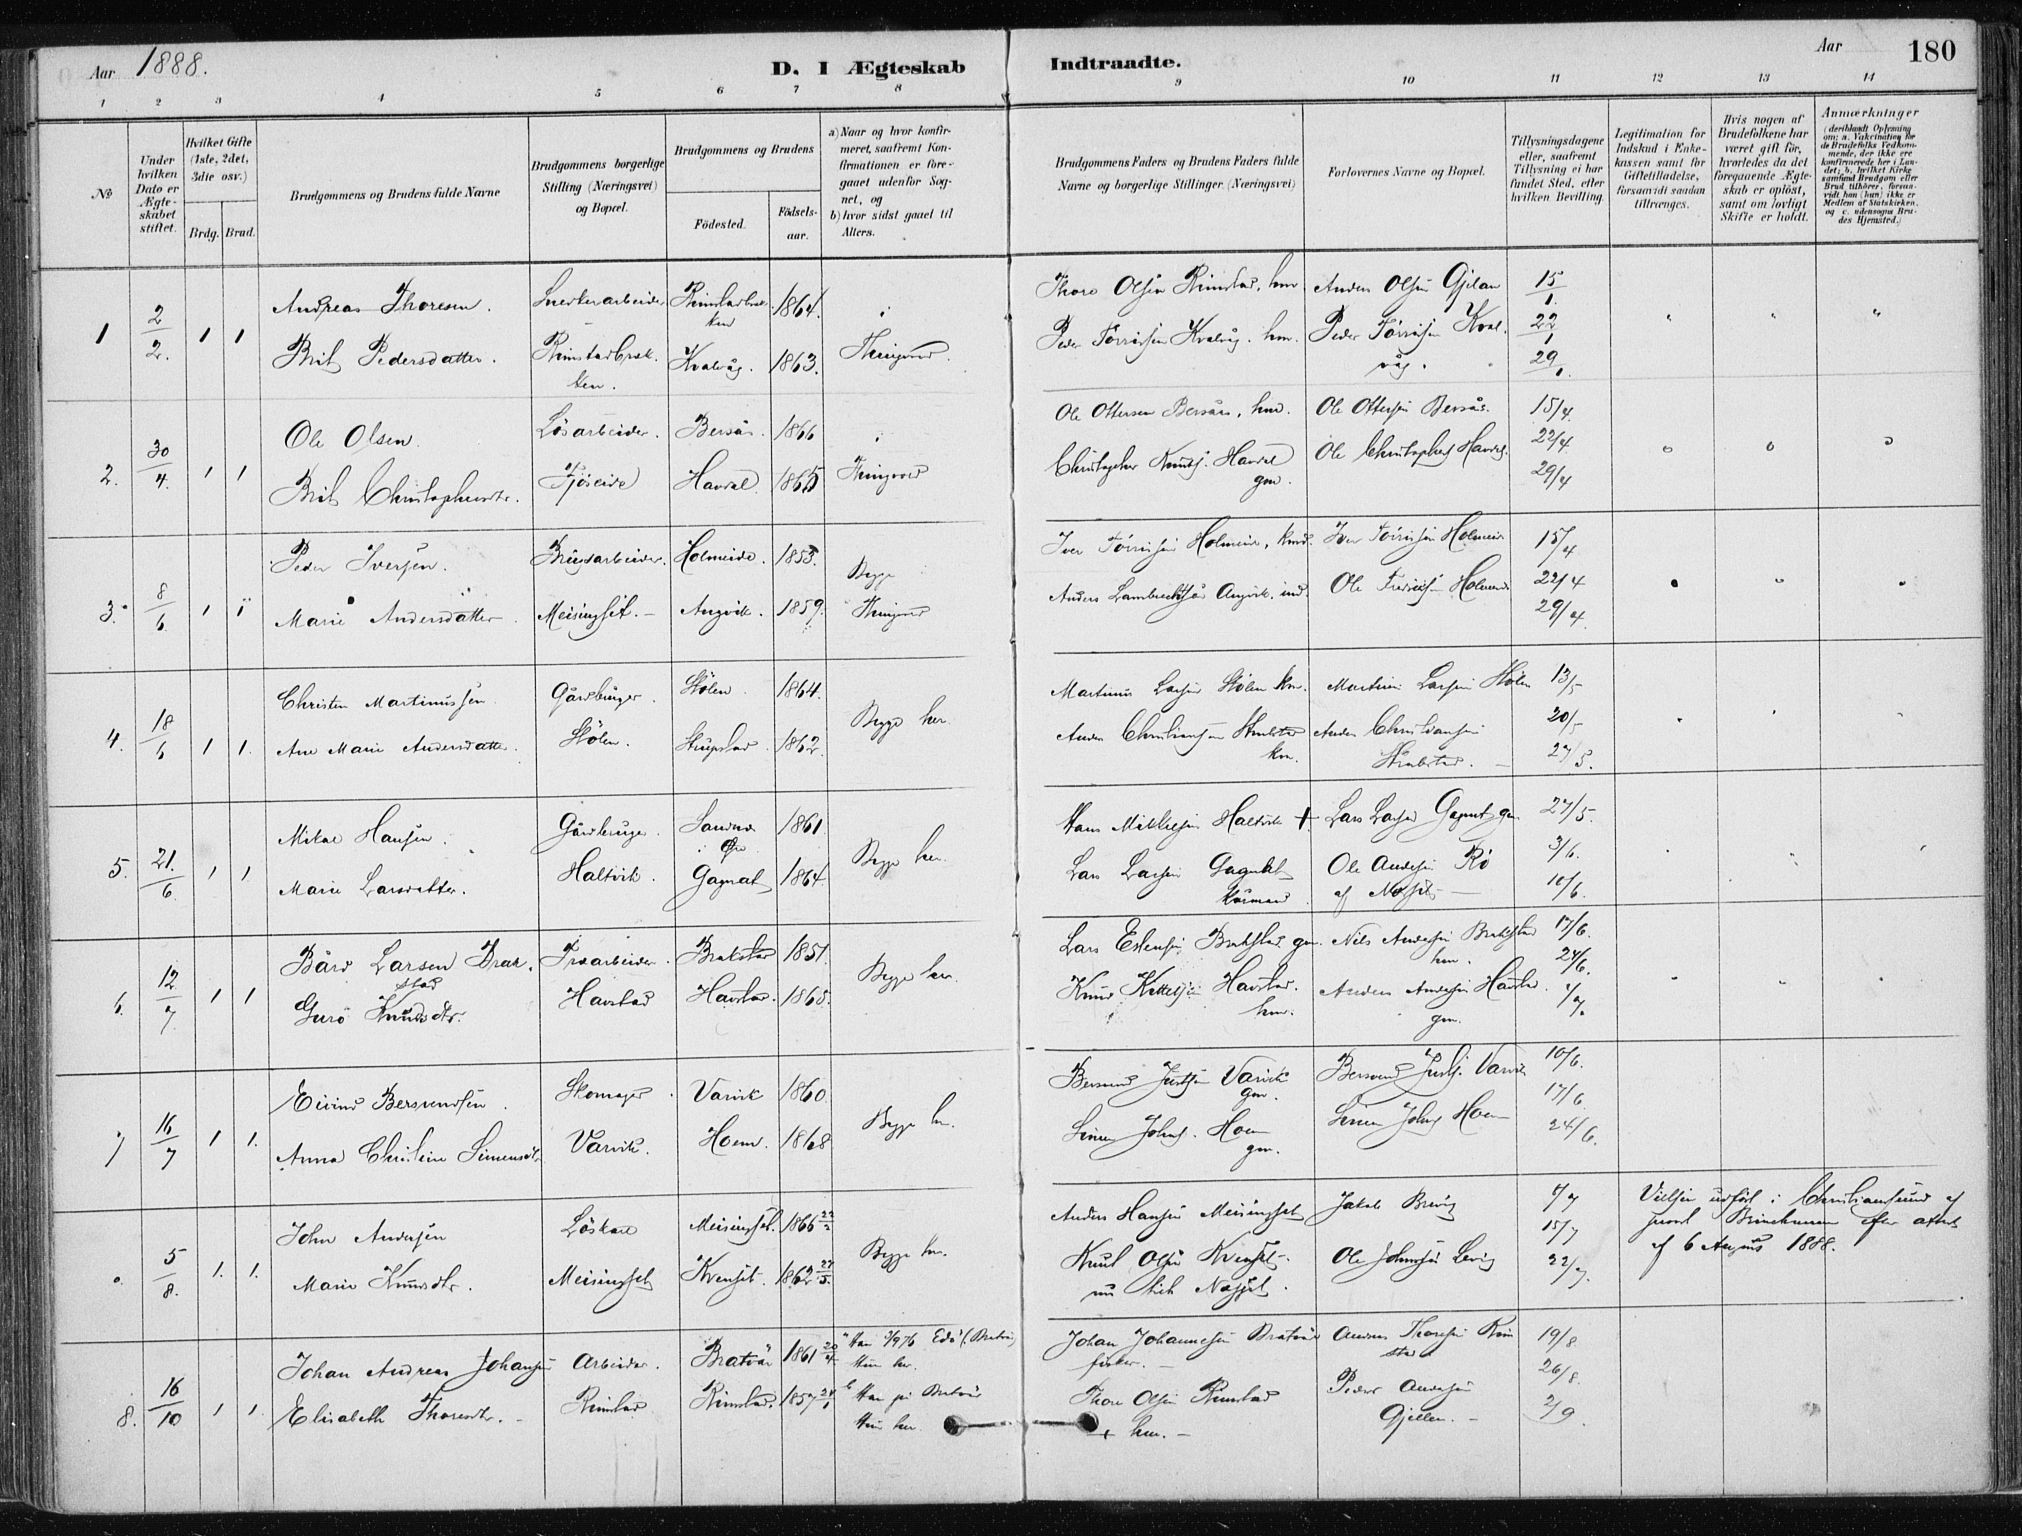 Aar 1888.
D. I Ægteskab
Indtraadte.
Aar
180
1 2 3 4 5 6 7 8 9 10 11 12 13 14
No
Under hvilken Dato er Ægteskabet stiftet.
Hvilket Gifte (1ste, 2det, 3die osv.)
Brdg. Brud.
Brudgommens og Brudens fulde Navne
Brudgommens borgerlige Stilling (Næringsvei) og Bopæl.
Brudgommens og Brudens
Fødested.
Fødselsaar.
a) Naar og hvor konfirmeret, saafremt Konfirmationen er foregaaet udenfor Sognet, og
b) hvor sidst gaaet til Alters.
Brudgommens Faders og Brudens Faders fulde Navne og borgerlige Stillinger (Næringsvei)
Forlovernes Navne og Bopæl.
Tillysningsdagene eller, saafremt Tillysning ei har fundet Sted, efter hvilken Bevilling.
Legitimation for Indskud i Enkekassen samt for Giftetilladelse, forsaavidt saadan tiltrænges.
Hvis nogen af Brudefolkene har været gift før, hvorledes da det foregaaende Ægteskab er opløst, samt om lovligt Skifte er holdt.
Anmærkninger
(deriblandt Oplysning om: a. Vakcination for de Brudefolks Vedkommende, der ikke ere konfirmerede her i Landet; b. hvilket Kirkesamfund Brudgom eller Brud tilhører, forsaavidt han (hun) ikke er Medlem af Statskirken, og c. udensogns Brudes Hjemsted.)
1 2/2. 1 1 Andreas Thoresen. Snedkerarbeider 1864. i Thore Olsen Rimstad, hm. Anders Olsen Gjelan 15/1.
Brit Pedersdatter. Kvalvåg. 1863. Thingvold. Peder Kvalvåg. hm. Peder Kvalvåg. 22/1 29/1.
2. 30/4. 1 1 Ole Olsen. Løsarbeider. Bersås. 1866 i Ole Ottersen Bersås, hm. Ole Ottersen Bersås. 15/4.
Brit Christophersdtr. Fjøseide Havdal 1865 Thingvold Christopher Knuds. Havdal gm. Ole Christophers. Havdal. 22/4 29/4
3. 8/6. 1 1 Peder Iversen. Brugsarbeider. Holmeide. 1853. Begge Iver Holmeide, Iver Holmeide 15/4
Marie Andersdatter Meisingset. Angvik. 1859. Thingvold Anders Lambrechtsen Angvik. ind. Ole Holmeide 22/4 29/4
4. 18/6 1 1. Christen Martinussen Gårdbruger. Stølen. 1864. Begge her. Martinus Larsen Stølen Martinus Larsen Stølen 13/5
Ane Marie Andersdatter. Stølen. 1862. Anders Christiansen Anders Christiansen 20/5 27/5.
5. 21./6. 1 1 Mikal Hansen. Gårdbruger. Sandnes 1861 Begge her. Hans Mikkelsen Haltvik + Lars Larsen Gagnat gm 27/5.
Marie Larsdatter. Haltvik. Gagnat 1864 Lars Larsen Gagnat Kårmand. Ole Andersen Rø af 3/6. 10/6.
6. 12/7 1 1 Bård Larsen Brakstad Træarbeider. Brakstad 1857. Begge her. Lars Estensen Brakstad gm. Nils Andersen Brakstad hm. 17/6. 24/6.
Gurø Knudsdtr. Havstad Havstad. 1865. Knud Kittelsen Havstad. hm. Anders Andersen Havstad gm. 1/7.
7 16/7 1 1. Eivind Bersvendsen. Skomager. Varvik 1860. Begge her. Bersvend Justsen Varvik gm. Bersvend Justs. Varvik 10/6. 17/6.
Anna Christine Simensdtr Varvik. Hoem. 1868 Simen Johns. Hoem gm. Simen Johns Hoem 24/6.
5/8. 1. 1. John Andersen Løskar Meisingset. 1866 22/2 Begge her. Anders Hansen Meisingset Jakob 8/7 Vielsen udført i Christiansund af
Marie Knudsdtr. Meisingset Kvenset. 1862 27/5. Knut Olsen Kvenset. Ole Johnsen 15/7 22/7. provst Brinchmann efter attest
af 6 August 1888.
8. 16/10 1 1. Johan Andreas Johansen Arbeider. Bratvær 1861 20/4 a Han Edø (Bratvær) Hun her. Johan Johannesen Bratvær fisker. Anders Thoresen Rimstad 19/8 26/8.
Elisabeth Thoresdtr. Rimstad Rimstad. 1857 24/1 b Han på Bratvær Hun her. Thore Olsen Rimstad + hm. Peder Andersen Gjellan. 2/9.